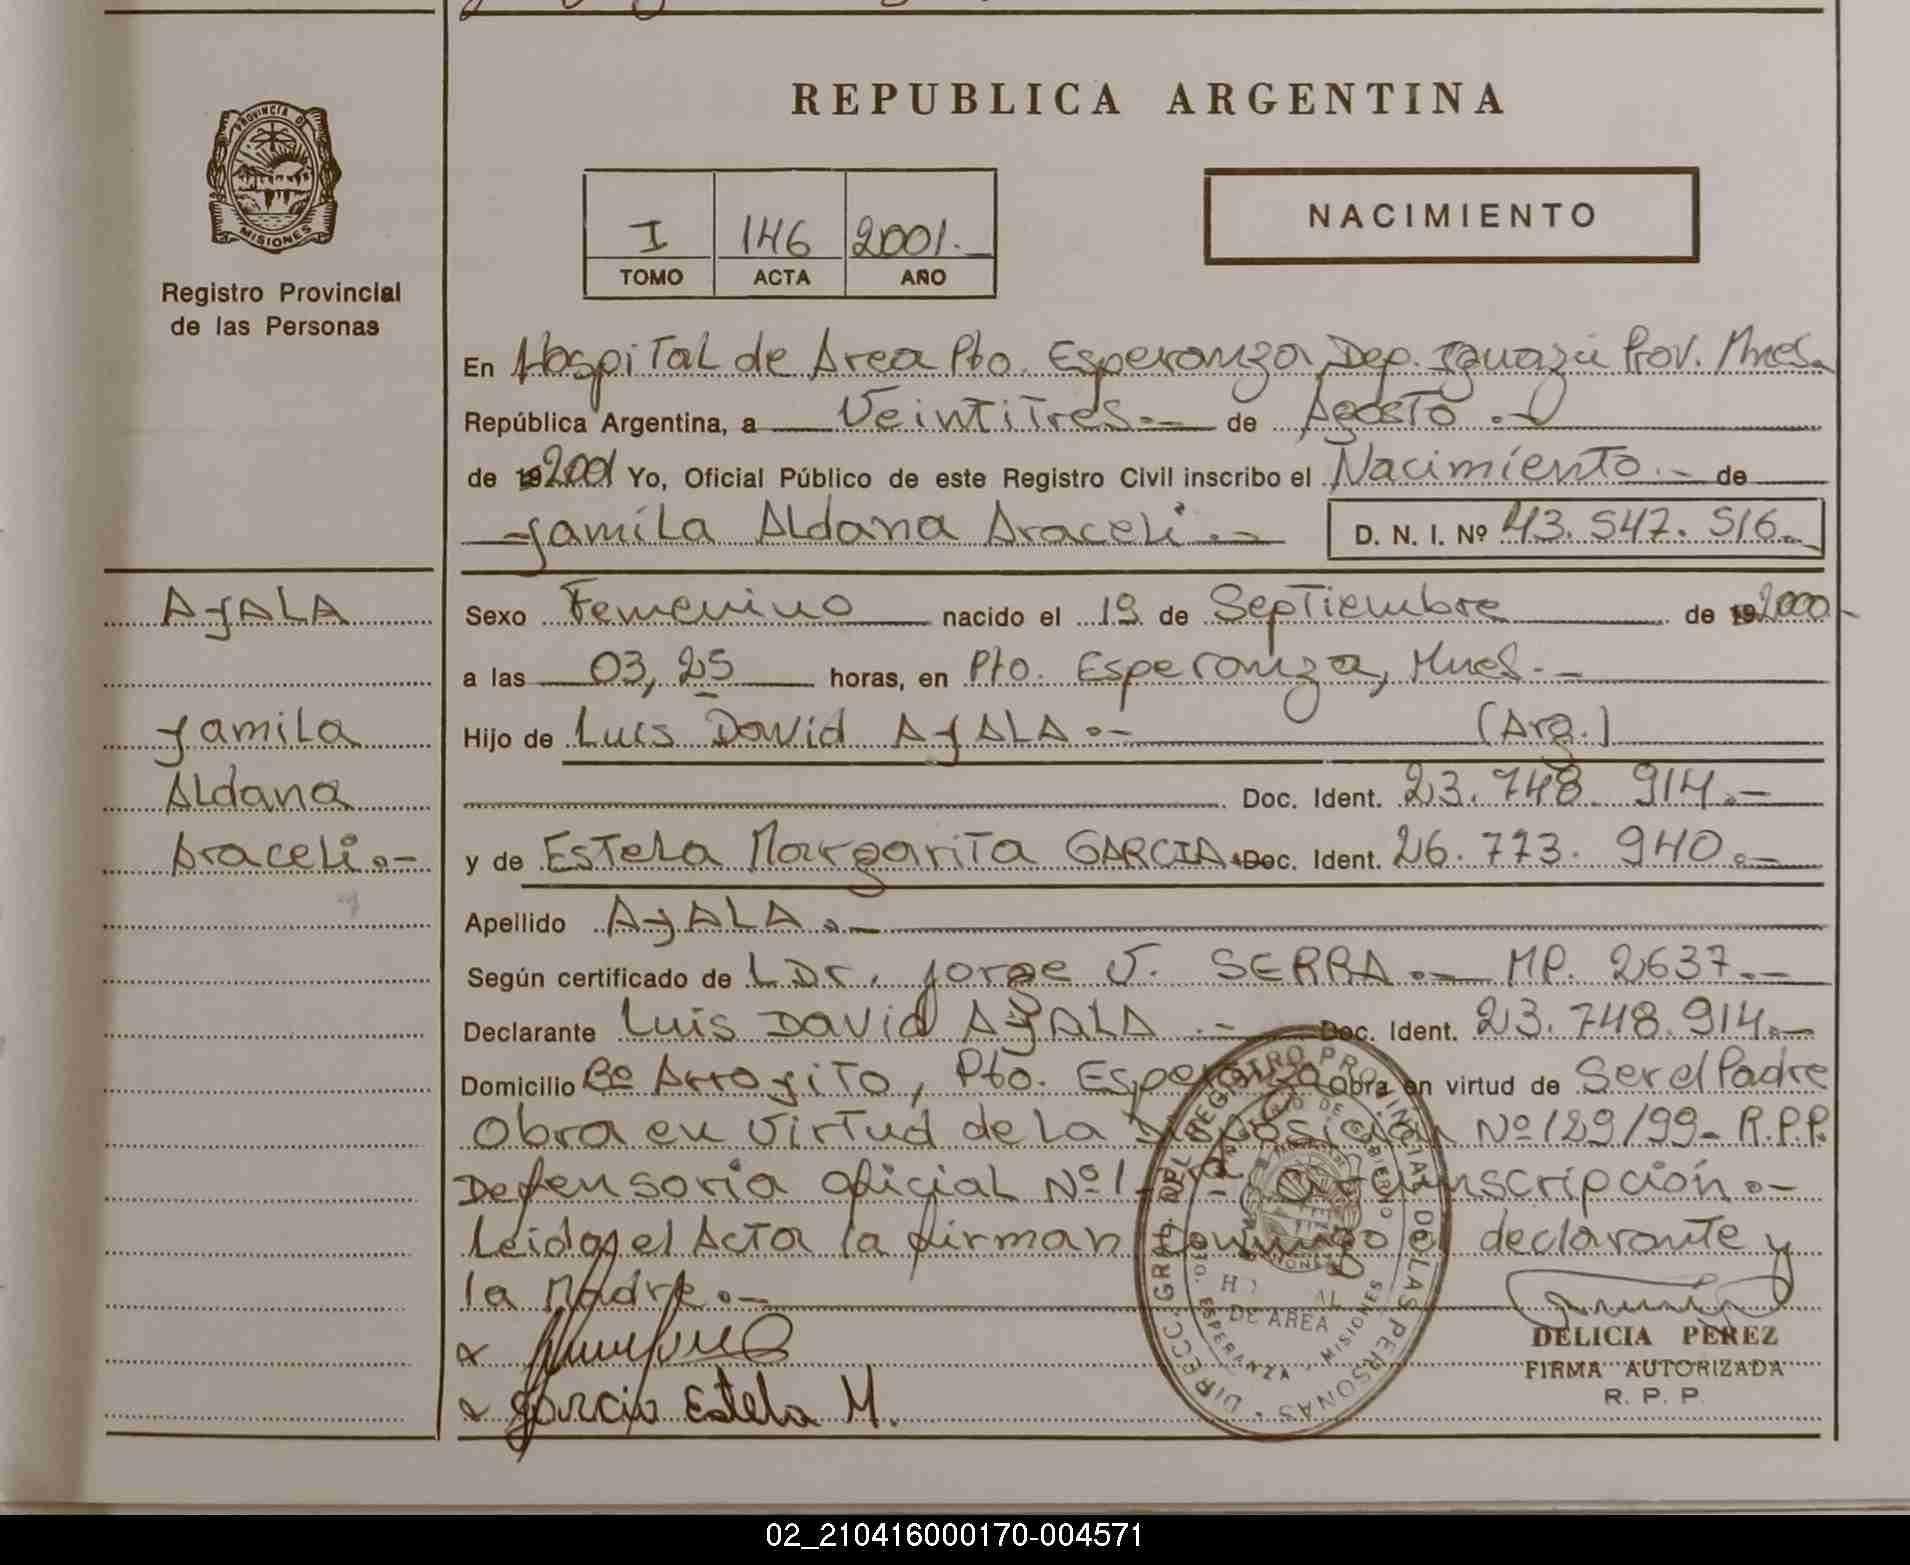 REPUBLICA ARGENTINA
PROVINCIA DE
MISIONES
Registro Provincial
de las Personas
I 146 2001.-
TOMO ACTA AÑO
NACIMIENTO
En Hospital de Area Pto. Esperanza, Dep. Iguazú Prov. Mnes.
República Argentina, a Veintitres.- de Agosto.-
de 192001 Yo, Oficial Público de este Registro Civil inscribo el Nacimiento.- de
Yamila Aldana Araceli.- D. N. I. Nº 43.547.516.-
AYALA
Yamila
Aldana
Araceli.-
Sexo Femenino nacido el 19 de Septiembre de 192000.-
a las 03,25 horas, en Pto. Esperanza, Mnes.-
Hijo de Luis David AYALA.- (Arg.)
Doc. Ident. 23.748.914.-
y de Estela Margarita GARCIA. Doc. Ident. 26.773.940.-
Apellido AYALA.-
Según certificado de L Dr. Jorge V. SERRA.- MP. 2637.-
Declarante Luis David AYALA.- Doc. Ident. 23.748.914.-
Domicilio Bº Arroyito, Pto. Esperanza Obra en virtud de Ser el Padre
Obra en virtud de la Disposición Nº 129/99- R.P.P.
Defensoria oficial Nº 1- Circunscripción.-
Leida el Acta la firman Conmigo el declarante y
la Madre.-
Garcia Estela M.
DIRECC. GRAL. DEL REGISTRO PROVINCIAL DE LAS PERSONAS
DE AREA
ESPERANZA - MISIONES
DELICIA PEREZ
FIRMA AUTORIZADA
R. P. P.
02_210416000170-004571